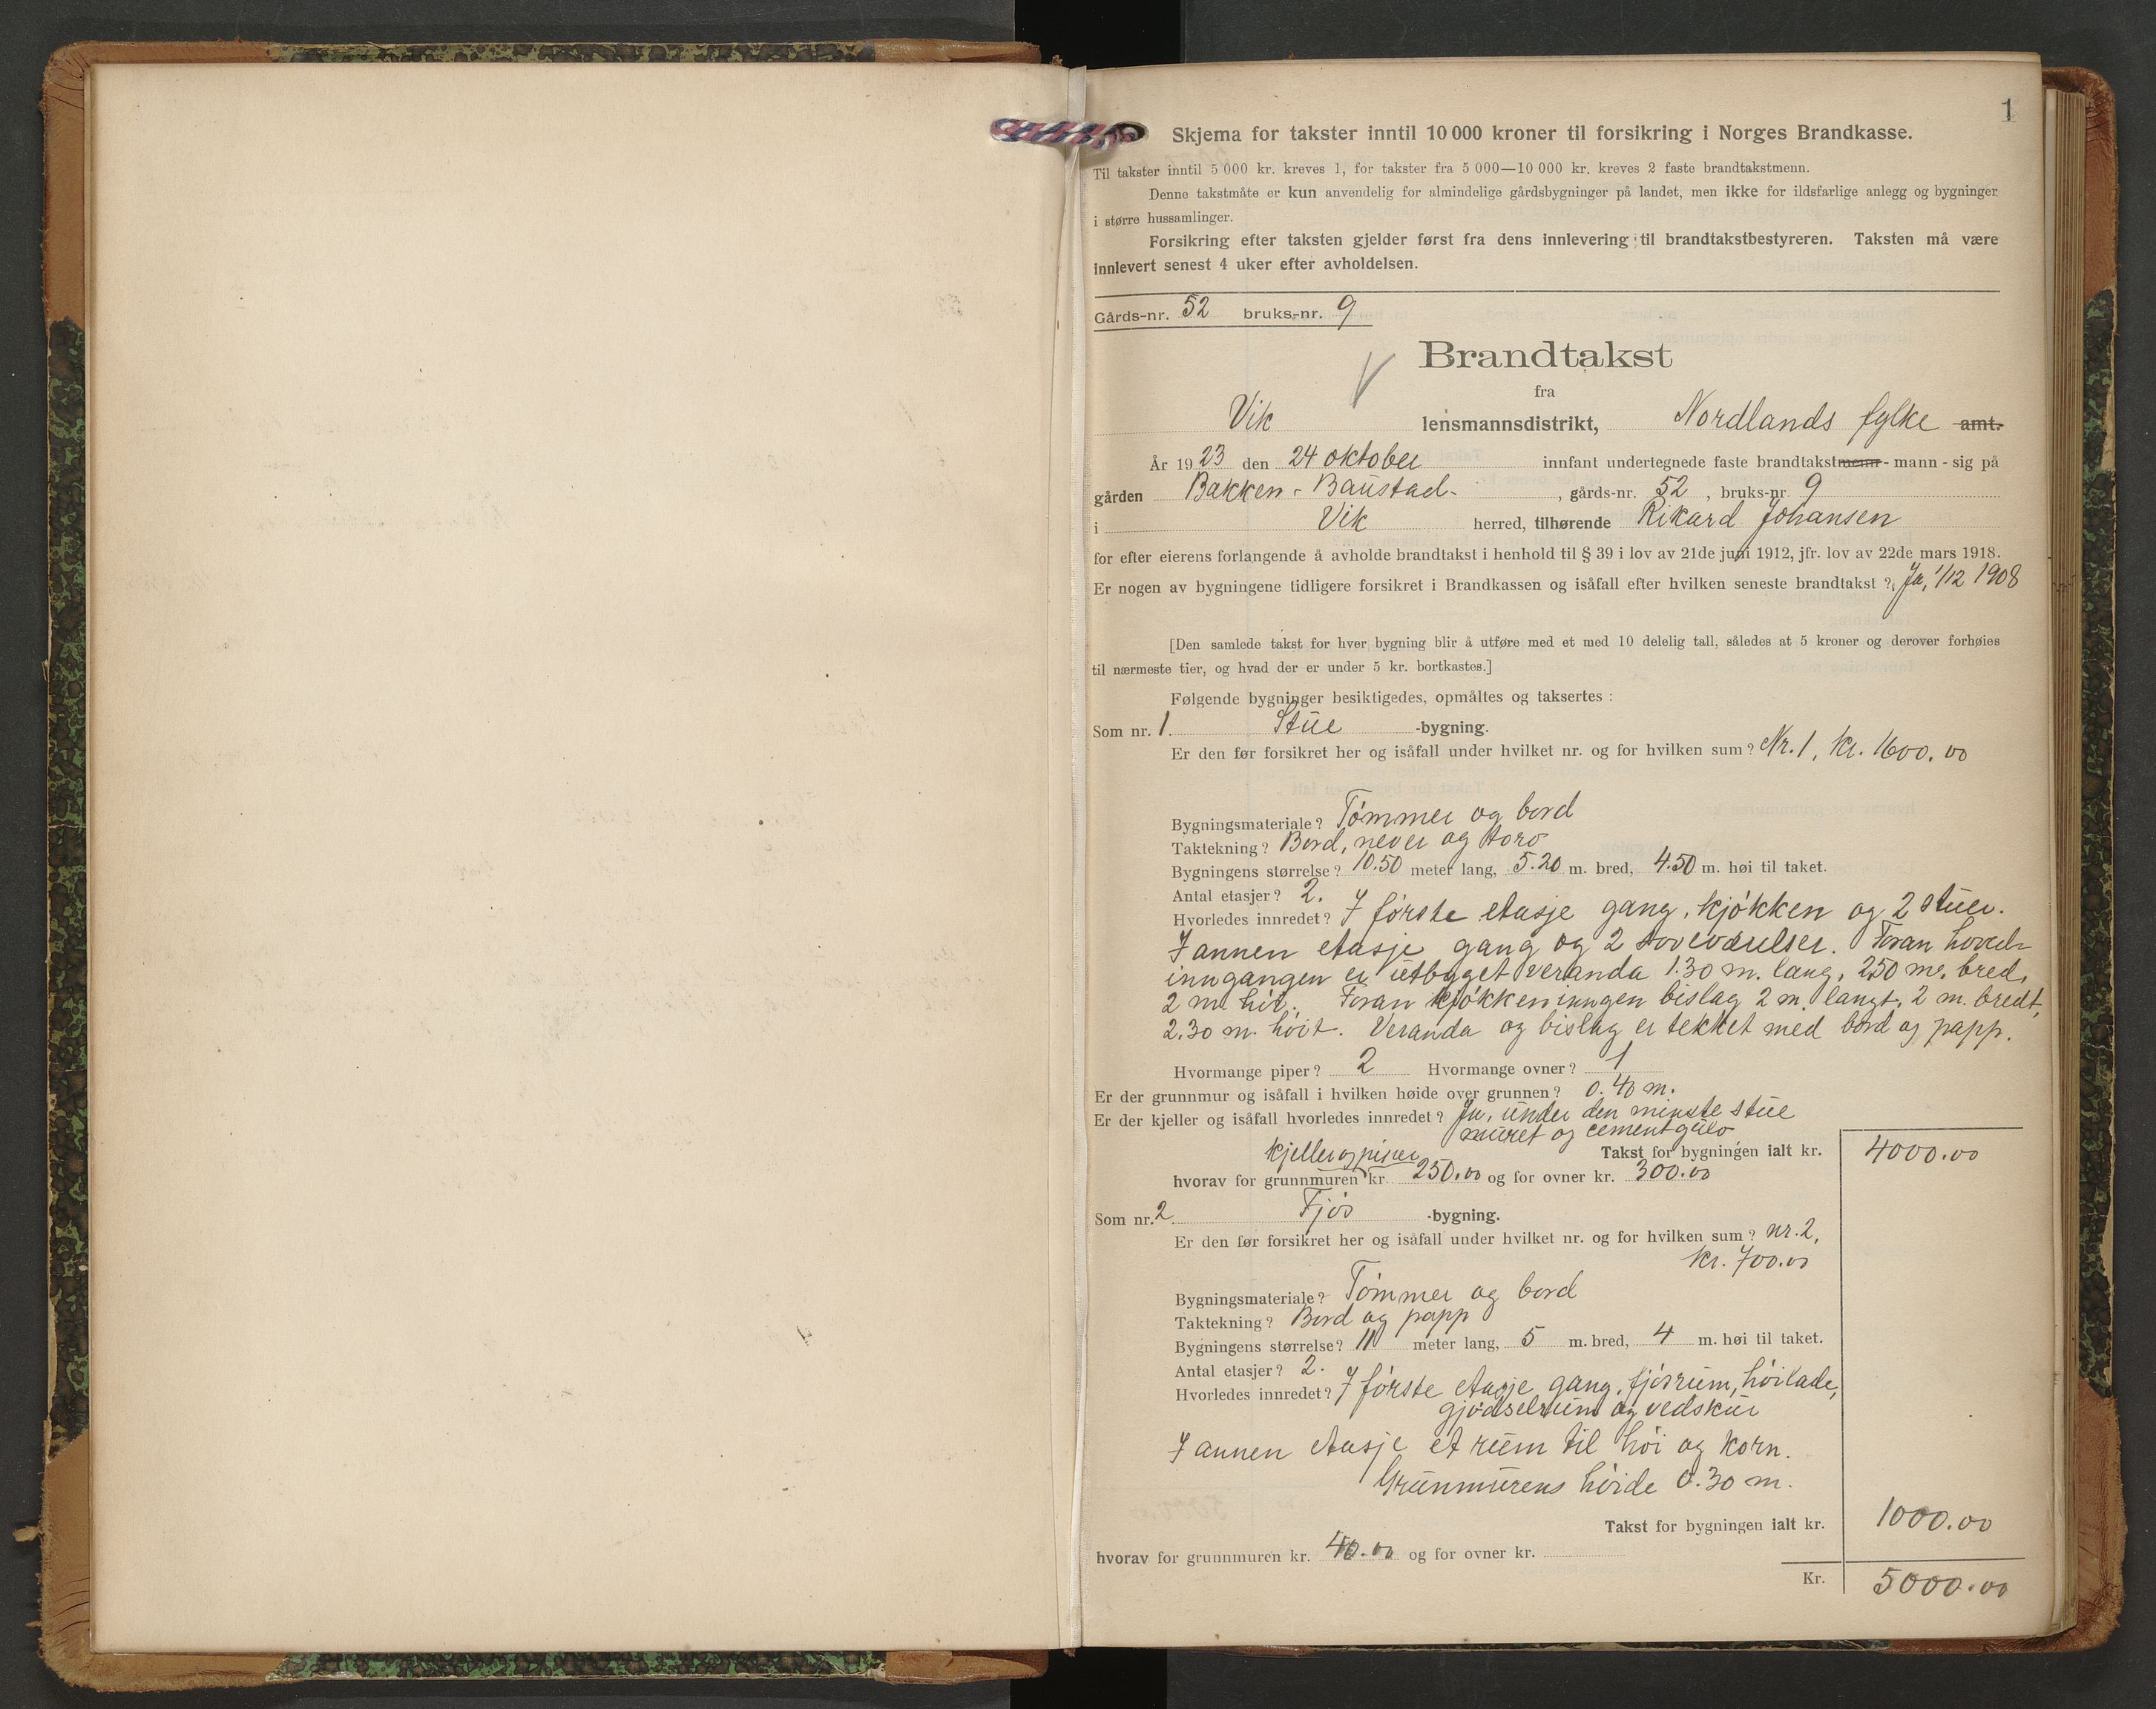 1
Skjema for takster inntil 10 000 kroner til forsikring i Norges Brandkasse.
Til takster inntil 5 000 kr. kreves 1, for takster fra 5 000—10 000 kr. kreves 2 faste brandtakstmenn.
Denne takstmåte er kun anvendelig for almindelige gårdsbygninger på landet, men ikke for ildsfarlige anlegg og bygninger
i større hussamlinger.
Forsikring efter taksten gjelder først fra dens innlevering til brandtakstbestyreren. Taksten må være
innlevert senest 4 uker efter avholdelsen.
Gårds-nr. 52 bruks-nr. 9
Brandtakst
fra
Vik lensmannsdistrikt, Nordlands fylke amt.
År 1923 den 24 oktober innfant undertegnede faste brandtakstmenn - mann - sig på
gården Bakken - Baustad- , gårds-nr. 52 , bruks-nr. 9
i Vik herred, tilhørende Rikard Johansen
for efter eierens forlangende å avholde brandtakst i henhold til § 39 i lov av 21de juni 1912, jfr. lov av 22de mars 1918.
Er nogen av bygningene tidligere forsikret i Brandkassen og isåfall efter hvilken seneste brandtakst ? Ja, 1/12 1908
[Den samlede takst for hver bygning blir å utføre med et med 10 delelig tall, således at 5 kroner og derover forhøies
til nærmeste tier, og hvad der er under 5 kr. bortkastes.]
Følgende bygninger besiktigedes, opmåltes og taksertes :
Som nr. 1. Stue -bygning.
Er den før forsikret her og isåfall under hvilket nr. og for hvilken sum ? Nr. 1, kr. 1600.00
Bygningsmateriale ? Tømmer og bord
Taktekning ? Bord, never og torv
Bygningens størrelse ? 10.50 meter lang, 5.20 m. bred, 4.50 m. høi til taket.
Antal etasjer ? 2.
Hvorledes innredet ? I første etasje gang, kjøkken og 2 stuer.
I annen etasje gang og 2 soveværelser. Foran hoved-
inngangen er utbygget veranda 1.30 m. lang, 2,50 m. bred,
2 m. høi. Foran kjøkkeninngen bislag 2 m. langt, 2 m. bredt,
2.30 m. høit. Veranda og bislag er tekket med bord og papp.
Hvormange piper ? 2 Hvormange ovner ? 1
Er der grunnmur og isåfall i hvilken høide over grunnen ? 0.40 m.
Er der kjeller og isåfall hvorledes innredet ? Ja, under den minste stue
muret og cementgulv
kjeller og piper Takst for bygningen ialt kr. 4000.00
hvorav for grunnmuren kr. 250.00 og for ovner kr. 300.00
Som nr. 2. Fjøs -bygning.
Er den før forsikret her og isåfall under hvilket nr. og for hvilken sum ? nr. 2,
kr. 700.00
Bygningsmateriale ? Tømmer og bord
Taktekning ? Bord og papp
Bygningens størrelse ? 11 meter lang, 5 m. bred, 4 m. høi til taket.
Antal etasjer ? 2.
Hvorledes innredet ? I første etasje gang, fjøsrum, høilade,
gjødselrum og vedskur
I annen etasje et rum til høi og korn.
Grunmurens høide 0.30 m.
Takst for bygningen ialt kr. 1000.00
hvorav for grunnmuren kr. 40.00 og for ovner kr.
Kr. 5000.00